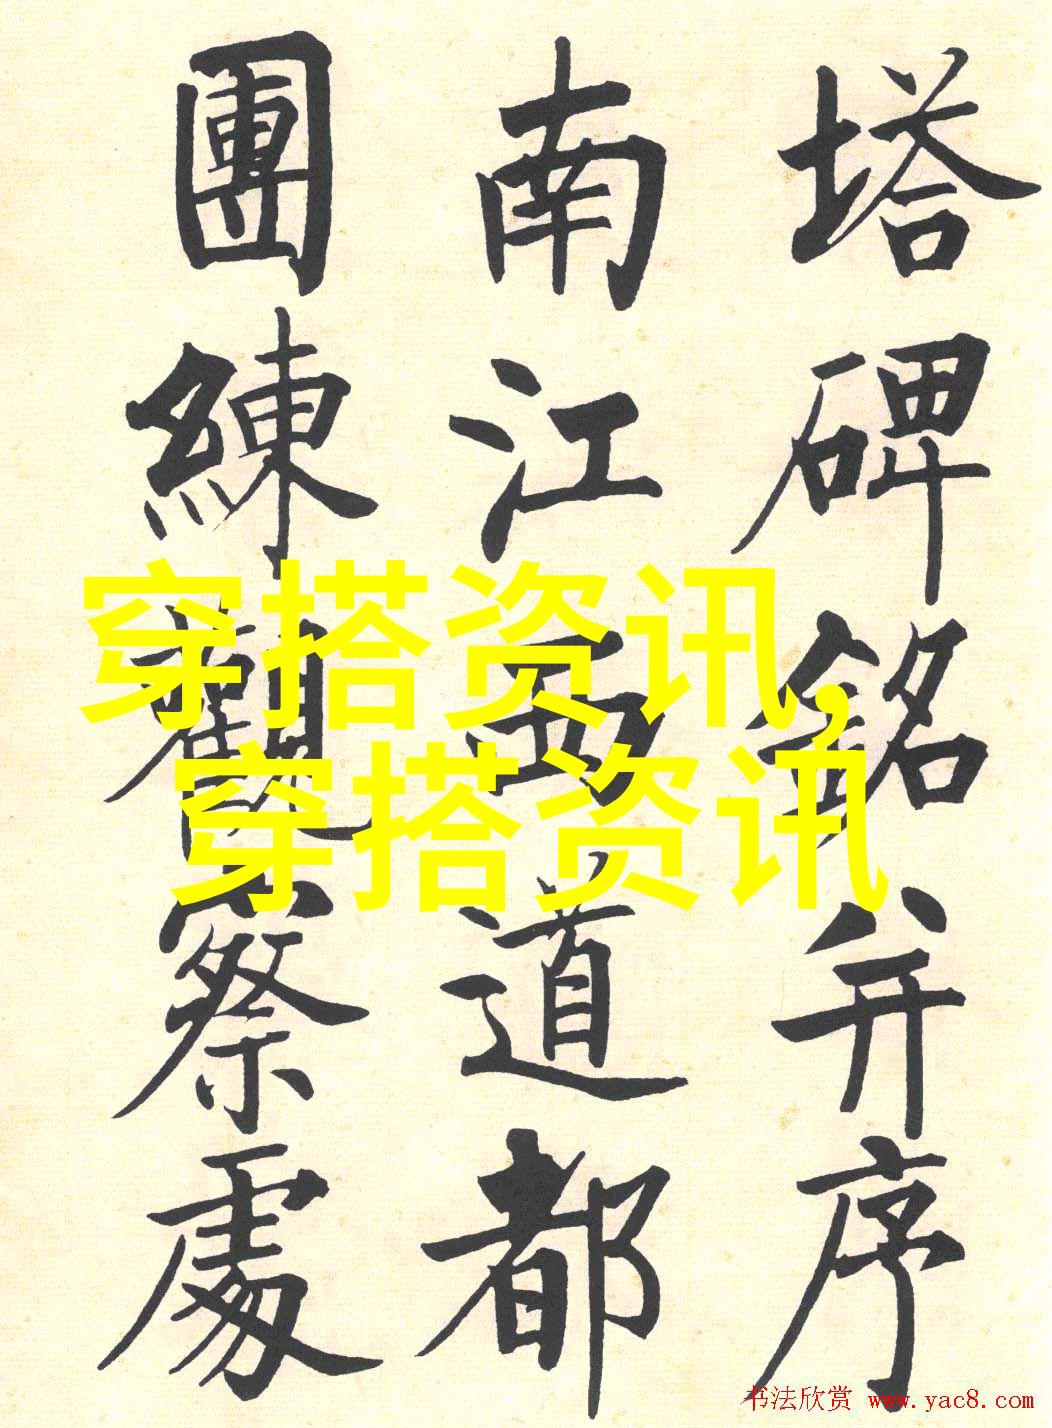 塔碑銘并序
南江西道都
團練觀察處
穿搭资讯,
穿搭资讯
书法欣赏 www.yac8.com